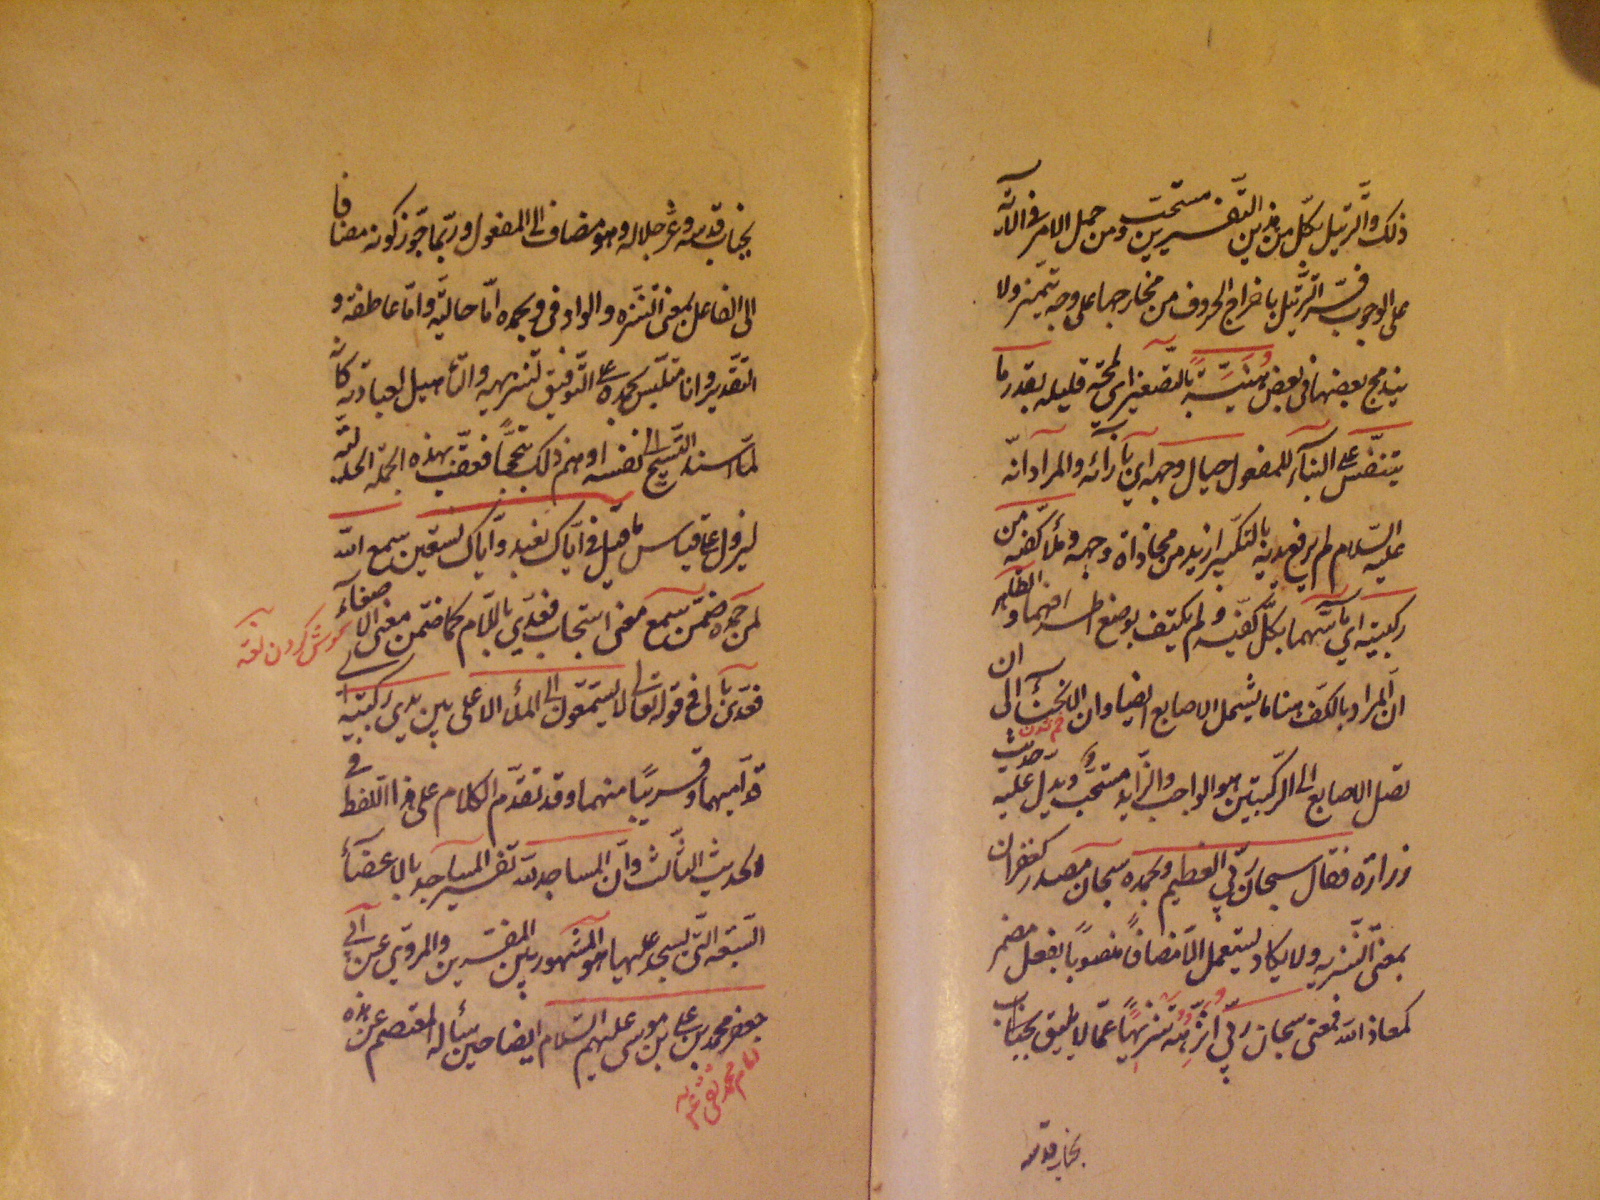 ذلك والترتيل بكل من هذين التفسيرين مستحب ومن حمل الامر في الآية
على الوجوب فسر الترتيل باخراج الحروف من مخارجها على وجه تتميز ولا
يندمج بعضها في بعض هنيئة بالتصغير اي لمحة قليلة بقدر ما
يتنفس على البناء للمفعول حيال وجهه اي بازائه والمراد انه
عليه السلام لم يرفع يديه بالتكبير ازيد من محاذاة وجهه وملأ كفيه من
ركبتيه اي ماسهما بكل كفيه ولم يكتف بوضع اطرافهما والظاهر
ان
ان المراد بالكف هنا ما يشمل الاصابع ايضا وان الانحناء الى
خم شدن
تصل الاصابع الى الركبتين هو الواجب والزايد مستحب ويدل عليه حديث
زرارة فقال سبحان ربي العظيم وبحمده سبحان مصدر كغفران
بمعنى التنزيه ولا يكاد يستعمل الا مضافا منصوبا بفعل مضمر
كمعاذ الله فمعنى سبحان ربي انزهه تنزيها عما لا يليق بجناب
بجناب قدسه
بجناب قدسه وعز جلاله وهو مضاف الى المفعول وربما جوز كونه مضافا
الى الفاعل بمعنى التنزه والواو في وبحمده اما حالية واما عاطفة و
التقدير وانا متلبس بحمده على التوفيق لتنزيهه والتأهيل لعبادته كانه
لما اسند التسبيح الى نفسه اوهم ذلك تبجحا فعقب بهذه الجملة الحالية
ليزول على قياس ما قيل في اياك نعبد واياك نستعين سمع الله
لمن حمده ضمن سمع معنى استجاب فعدي باللام كما ضمن معنى الاصغاء
گوش کردن لغة
فعدي بالى في قوله تعالى لا يستمعون الى الملأ الاعلى بين يدي ركبتيه اي
قدامهما وقريبا منهما وقد تقدم الكلام على هذا اللفظ في
الحديث الثالث وان المساجد لله تفسير المساجد بالاعضاء
السبعة التي يسجد عليها هو المشهور بين المفسرين والمروي عن ابي
جعفر محمد بن علي بن موسى عليهم السلام ايضا حين سأله المعتصم عن هذه
امام محمد تقى